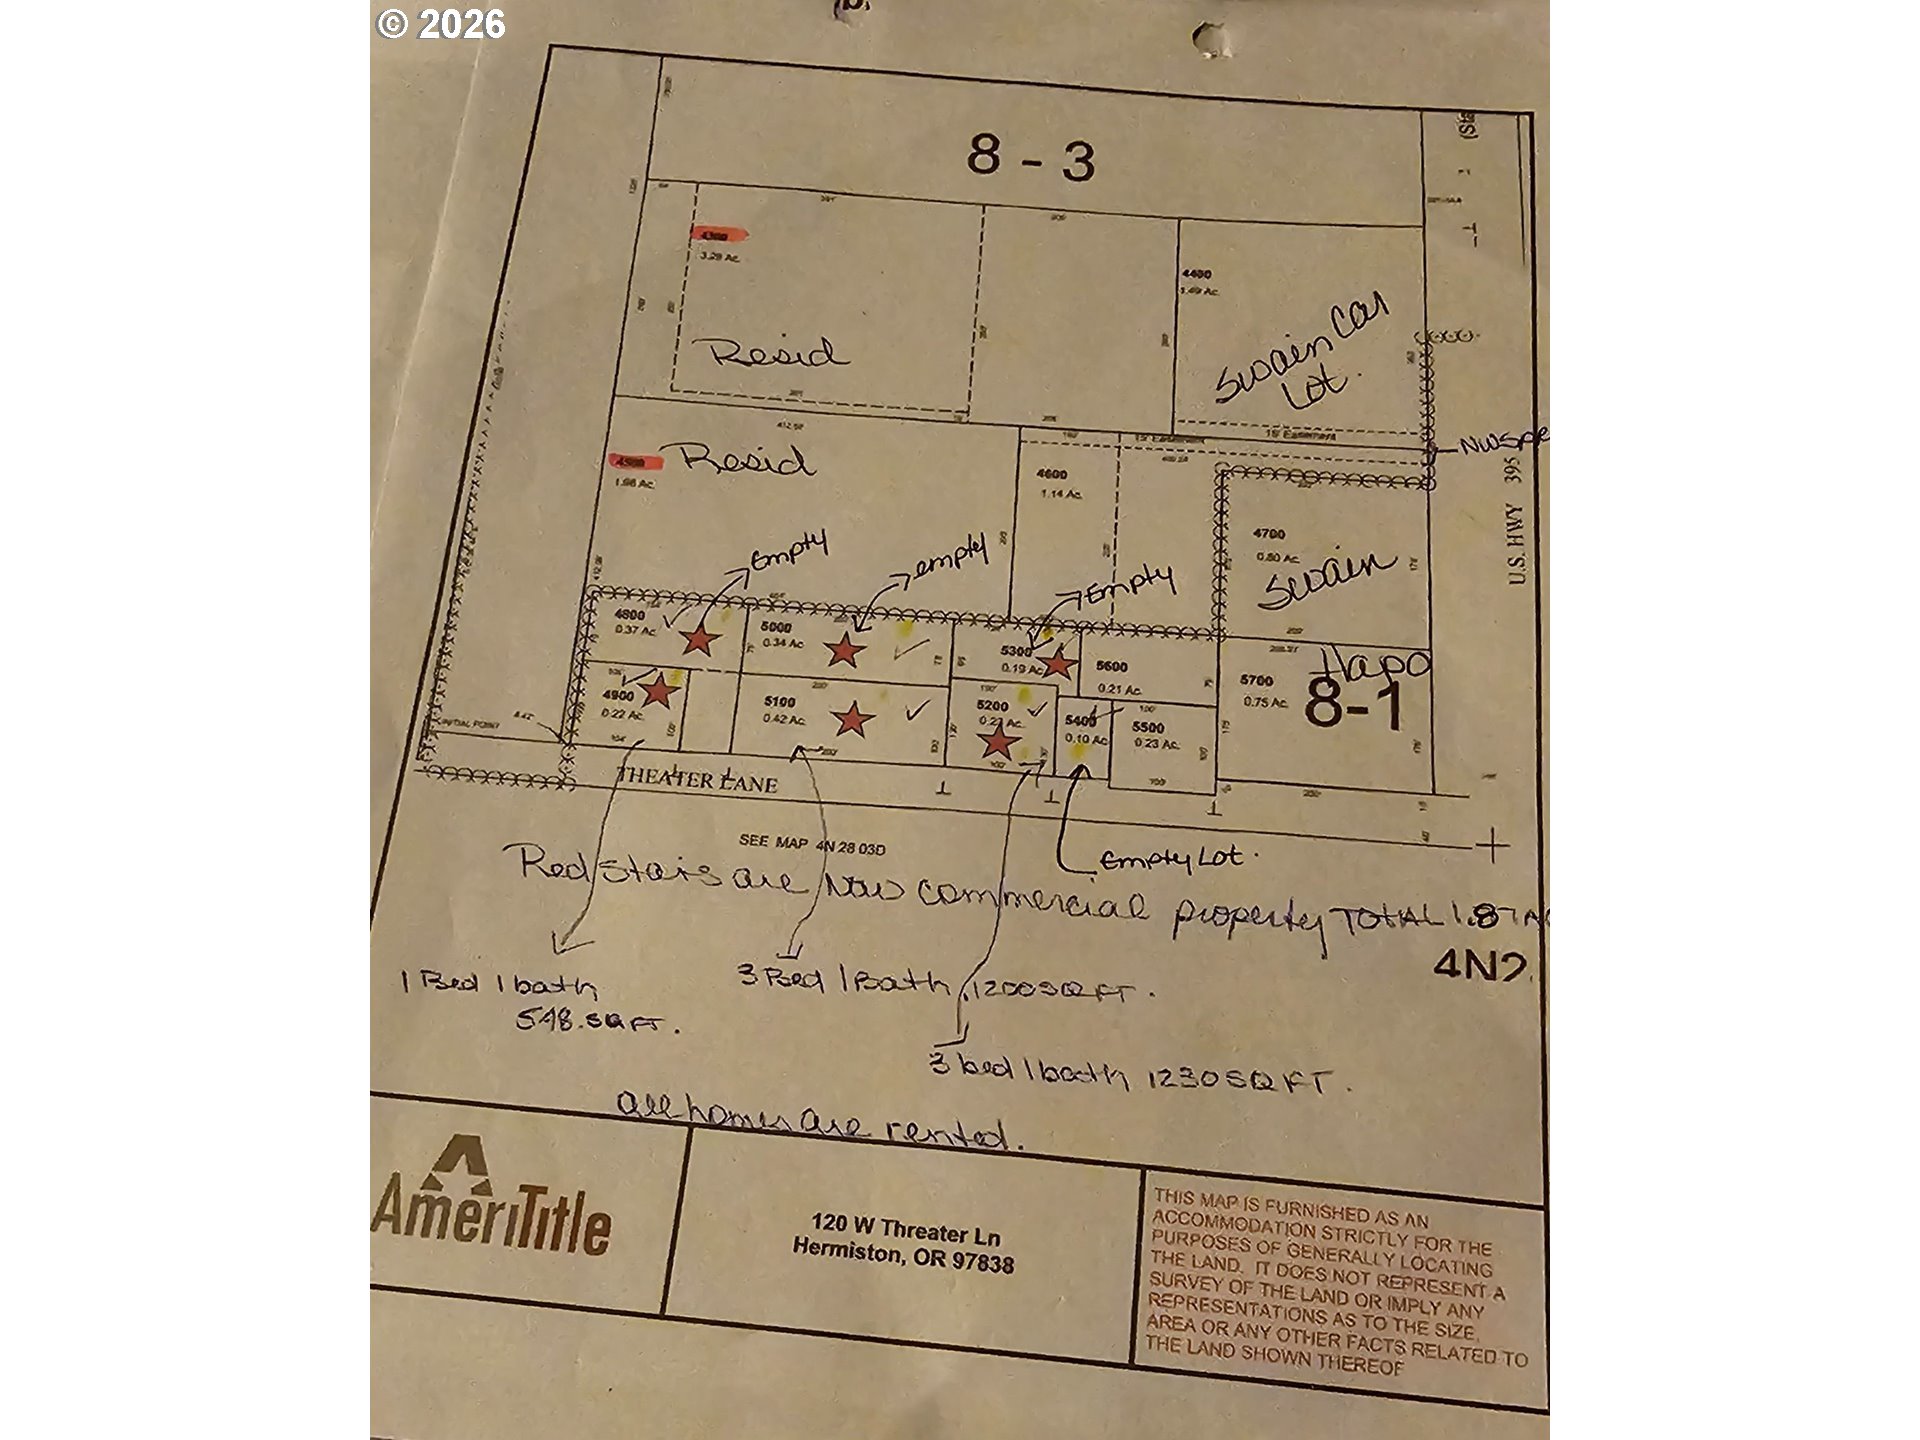 © 2026
8 - 3
4300
3.29 Ac.
Resid
4400
1.49 Ac.
Swain Car
Lot.
15' Easement
15' Easement
412.58'
4500
1.96 Ac.
Resid
4600
1.14 Ac.
U.S. HWY 395
4700
0.80 Ac.
Swain
Empty
empty
Empty
4800
0.37 Ac.
5000
0.34 Ac.
5300
0.19 Ac.
5600
0.21 Ac.
5700
0.75 Ac.
Hapo
8-1
4900
0.22 Ac.
5100
0.42 Ac.
5200
5400
0.10 Ac.
5500
0.23 Ac.
INITIAL POINT
THEATER LANE
SEE MAP 4N 28 03D
Empty Lot.
Red stars are Now commercial property TOTAL 1.87 A
4N2
1 Bed 1 bath
548.SQ FT.
3 Bed 1 Bath 1200SQ FT.
3 bed 1 bath 1230 SQ FT.
all homes are rented.
AmeriTitle
120 W Threater Ln
Hermiston, OR 97838
THIS MAP IS FURNISHED AS AN
ACCOMMODATION STRICTLY FOR THE
PURPOSES OF GENERALLY LOCATING
THE LAND. IT DOES NOT REPRESENT A
SURVEY OF THE LAND OR IMPLY ANY
REPRESENTATIONS AS TO THE SIZE,
AREA OR ANY OTHER FACTS RELATED TO
THE LAND SHOWN THEREOF